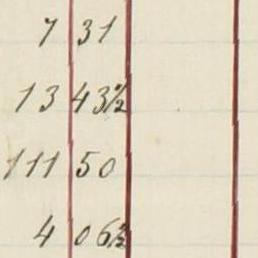 7 31
13 43½
111 50
4 06½